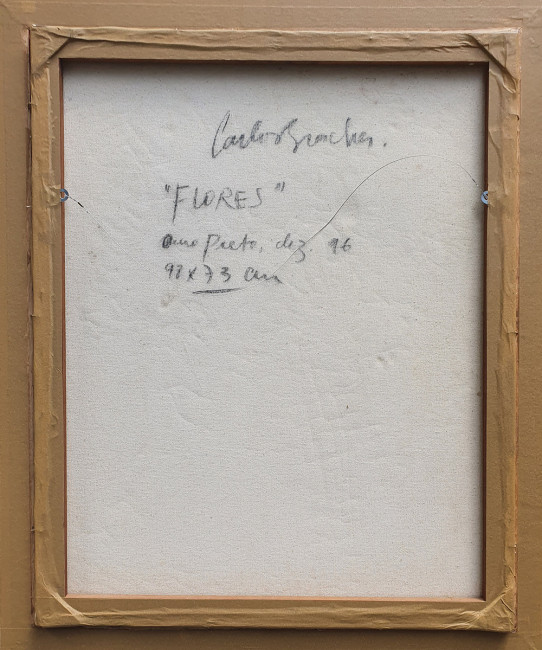 Carlos Bracher.
"FLORES"
Ouro Preto, dez. 96
92x73 cm